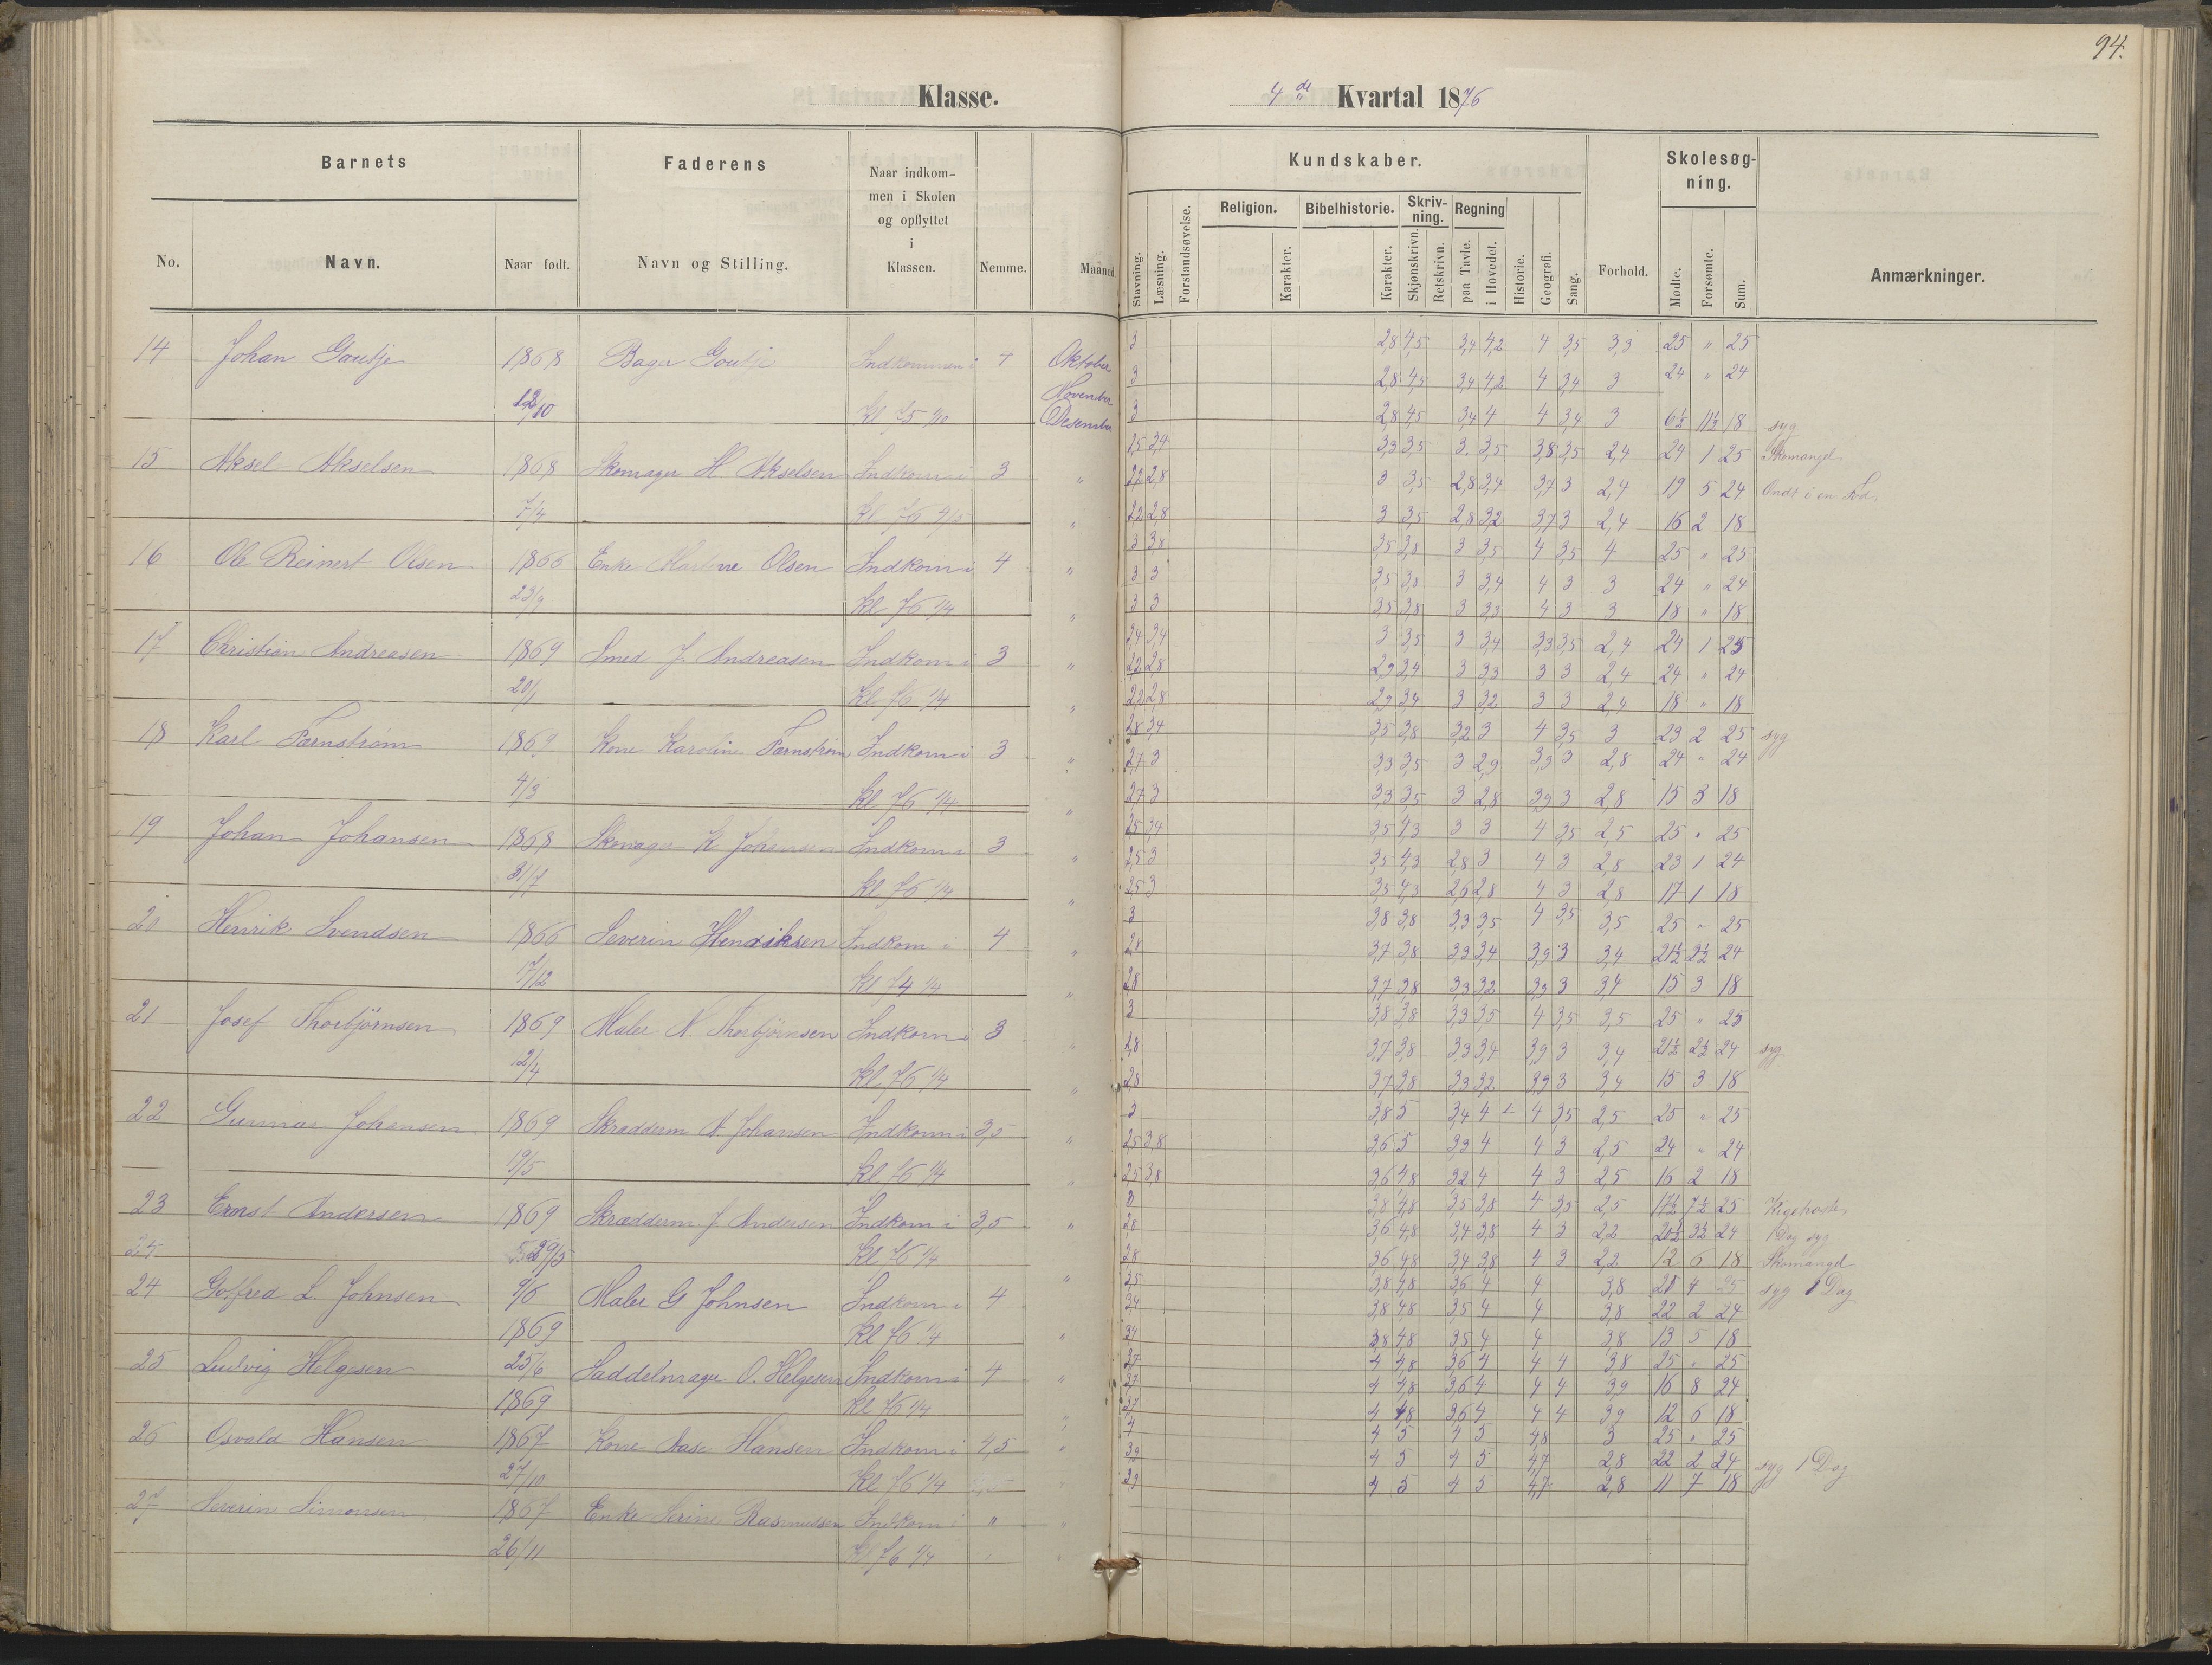 94.
Klasse.
4de Kvartal 1876
Barnets
Faderens
Naar indkommen i Skolen og opflyttet i Klassen.
Nemme.
Maaned.
No.
Navn.
Naar født.
Navn og Stilling.
Kundskaber.
Skolesøgning.
Stavning.
Læsning.
Forstandsøvelse.
Religion.
Karakter.
Bibelhistorie.
Karakter.
Skrivning.
Skjønskrivn.
Retskrivn.
Regning
paa Tavle.
i Hovedet.
Historie.
Geografi.
Sang.
Forhold.
Mødte.
Forsømte.
Sum.
Anmærkninger.
14 Johan Goutje 1868 Bager Goutje Indkommen i 4 Oktober 3 2,8 4,5 3,4 4,2 4 3,5 3,3 25 " 25
November 3 2,8 4,5 3,4 4,2 4 3,4 3 24 " 24
12/10 kl 75 1/10 Desember 3 2,8 4,5 3,4 4 4 3,4 3 6½ 11½ 18 syg
15 Aksel Akselsen 1868 Skomager H. Akselsen Indkom i 3 " 2,5 3,4 3,3 3,5 3 3,5 3,8 3,5 2,4 24 1 25 Skomangel
2,2 2,8 3 3,5 2,8 3,4 3,7 3 2,4 19 5 24 Ondt i en Fod
7/4 kl 76 4/5 " 2,2 2,8 3 3,5 2,8 3,2 3,7 3 2,4 16 2 18
16 Ole Reinert Olsen 1866 Enke Olsen Indkom i 4 " 3 3,8 3,5 3,8 3 3,5 4 3,5 4 25 " 25
3 3 3,5 3,8 3 3,4 4 3 3 24 " 24
23/9 kl 76 1/4 " 3 3 3,5 3,8 3 3,3 4 3 3 18 " 18
17 Christian Andreasen 1869 Smed J. Andreasen Indkom i 3 " 2,4 3,4 3 3,5 3 3,4 3,3 3,5 2,4 24 1 25
2,2 2,8 2,9 3,4 3 3,3 3 3 2,4 24 " 24
20/1 kl 76 1/4 " 2,2 2,8 2,9 3,4 3 3,2 3 3 2,4 18 " 18
18 Karl Farnstrøm 1869 Kone Karoline Farnstrøm Indkom i 3 " 2,8 3,4 3,5 3,8 3,2 3 4 3,5 3 23 2 25 syg
2,7 3 3,3 3,5 3 2,9 3,9 3 2,8 24 " 24
4/3 kl 76 1/4 " 2,7 3 3,3 3,5 3 2,8 3,9 3 2,8 15 3 18
19 Johan Johansen 1868 Skomager K Johansen Indkom i 3 " 2,5 3,4 3,5 4,3 3 3 4 3,5 2,5 25 " 25
2,5 3 3,5 4,3 2,8 3 4 3 2,8 23 1 24
31/7 kl 76 1/4 " 2,5 3 3,5 4,3 2,6 2,8 4 3 2,8 17 1 18
20 Henrik Svendsen 1866 Severin Hendriksen Indkom i 4 " 3 3,8 3,8 3,3 3,5 4 3,5 3,5 25 " 25
2,8 3,7 3,8 3,3 3,4 3,9 3 3,4 21½ 2½ 24
17/12 kl 74 1/4 " 2,8 3,7 3,8 3,3 3,2 3,9 3 3,4 15 3 18
21 Josef Thorbjørnsen 1869 Maler N. Thorbjørnsen Indkom i 3 " 3 3,8 3,8 3,3 3,5 4 3,5 3,5 25 " 25
2,8 3,7 3,8 3,3 3,4 3,9 3 3,4 21½ 2½ 24 syg
12/4 kl 76 1/4 " 2,8 3,7 3,8 3,3 3,2 3,9 3 3,4 15 3 18
22 Gunnar Johansen 1869 Skrædderm A Johansen Indkom i 3,5 " 3 3,8 5 3,4 4 4 3,5 2,5 25 " 25
2,5 3,8 3,6 5 3,3 4 4 3 2,5 24 " 24
19/5 kl 76 1/4 " 2,5 3,8 3,6 4,8 3,2 4 4 3 2,5 16 2 18
23 Ernst Andersen 1869 Skrædderm J. Andersen Indkom i 3,5 " 3 3,8 4,8 3,5 3,8 4 3,5 2,5 17½ 7½ 25 Kigehoste
2,8 3,6 4,8 3,4 3,8 4 3 2,2 20½ 3½ 24 1 Dag syg
29/5 kl 76 1/4 2,8 3,6 4,8 3,4 3,8 4 3 2,2 12 6 18 Skomangel
24 Gotfred L. Johnsen 9/6 Maler G Johnsen Indkom i 4 " 3,5 3,8 4,8 3,6 4 4 3,8 21 4 25 syg 1 Dag
3,4 3,8 4,8 3,5 4 4 3,8 22 2 24
1869 kl 76 1/4 " 3,4 3,8 4,8 3,5 4 4 3,8 13 5 18
25 Ludvig Helgesen 25/6 Saddelmager O. Helgesen Indkom i 4 " 3,7 4 4,8 3,6 4 4 4 3,8 25 " 25
3,7 4 4,8 3,6 4 4 4 3,9 16 8 24
1869 kl 76 1/4 " 3,7 4 4,8 3,6 4 4 4 3,9 12 6 18
26 Osvald Hansen 1867 Kone Aase Hansen Indkom i 4,5 " 4 4 5 4 5 4,8 3 25 " 25
3,9 4 5 4 5 4,7 2,8 22 2 24 syg 1 Dag
27/10 kl 76 1/4 3,9 4 5 4 5 4,7 2,8 11 7 18
27 Severin Simonsen 1867 Enke Serine Rasmussen Indkom i " "
26/11 kl 76 1/4